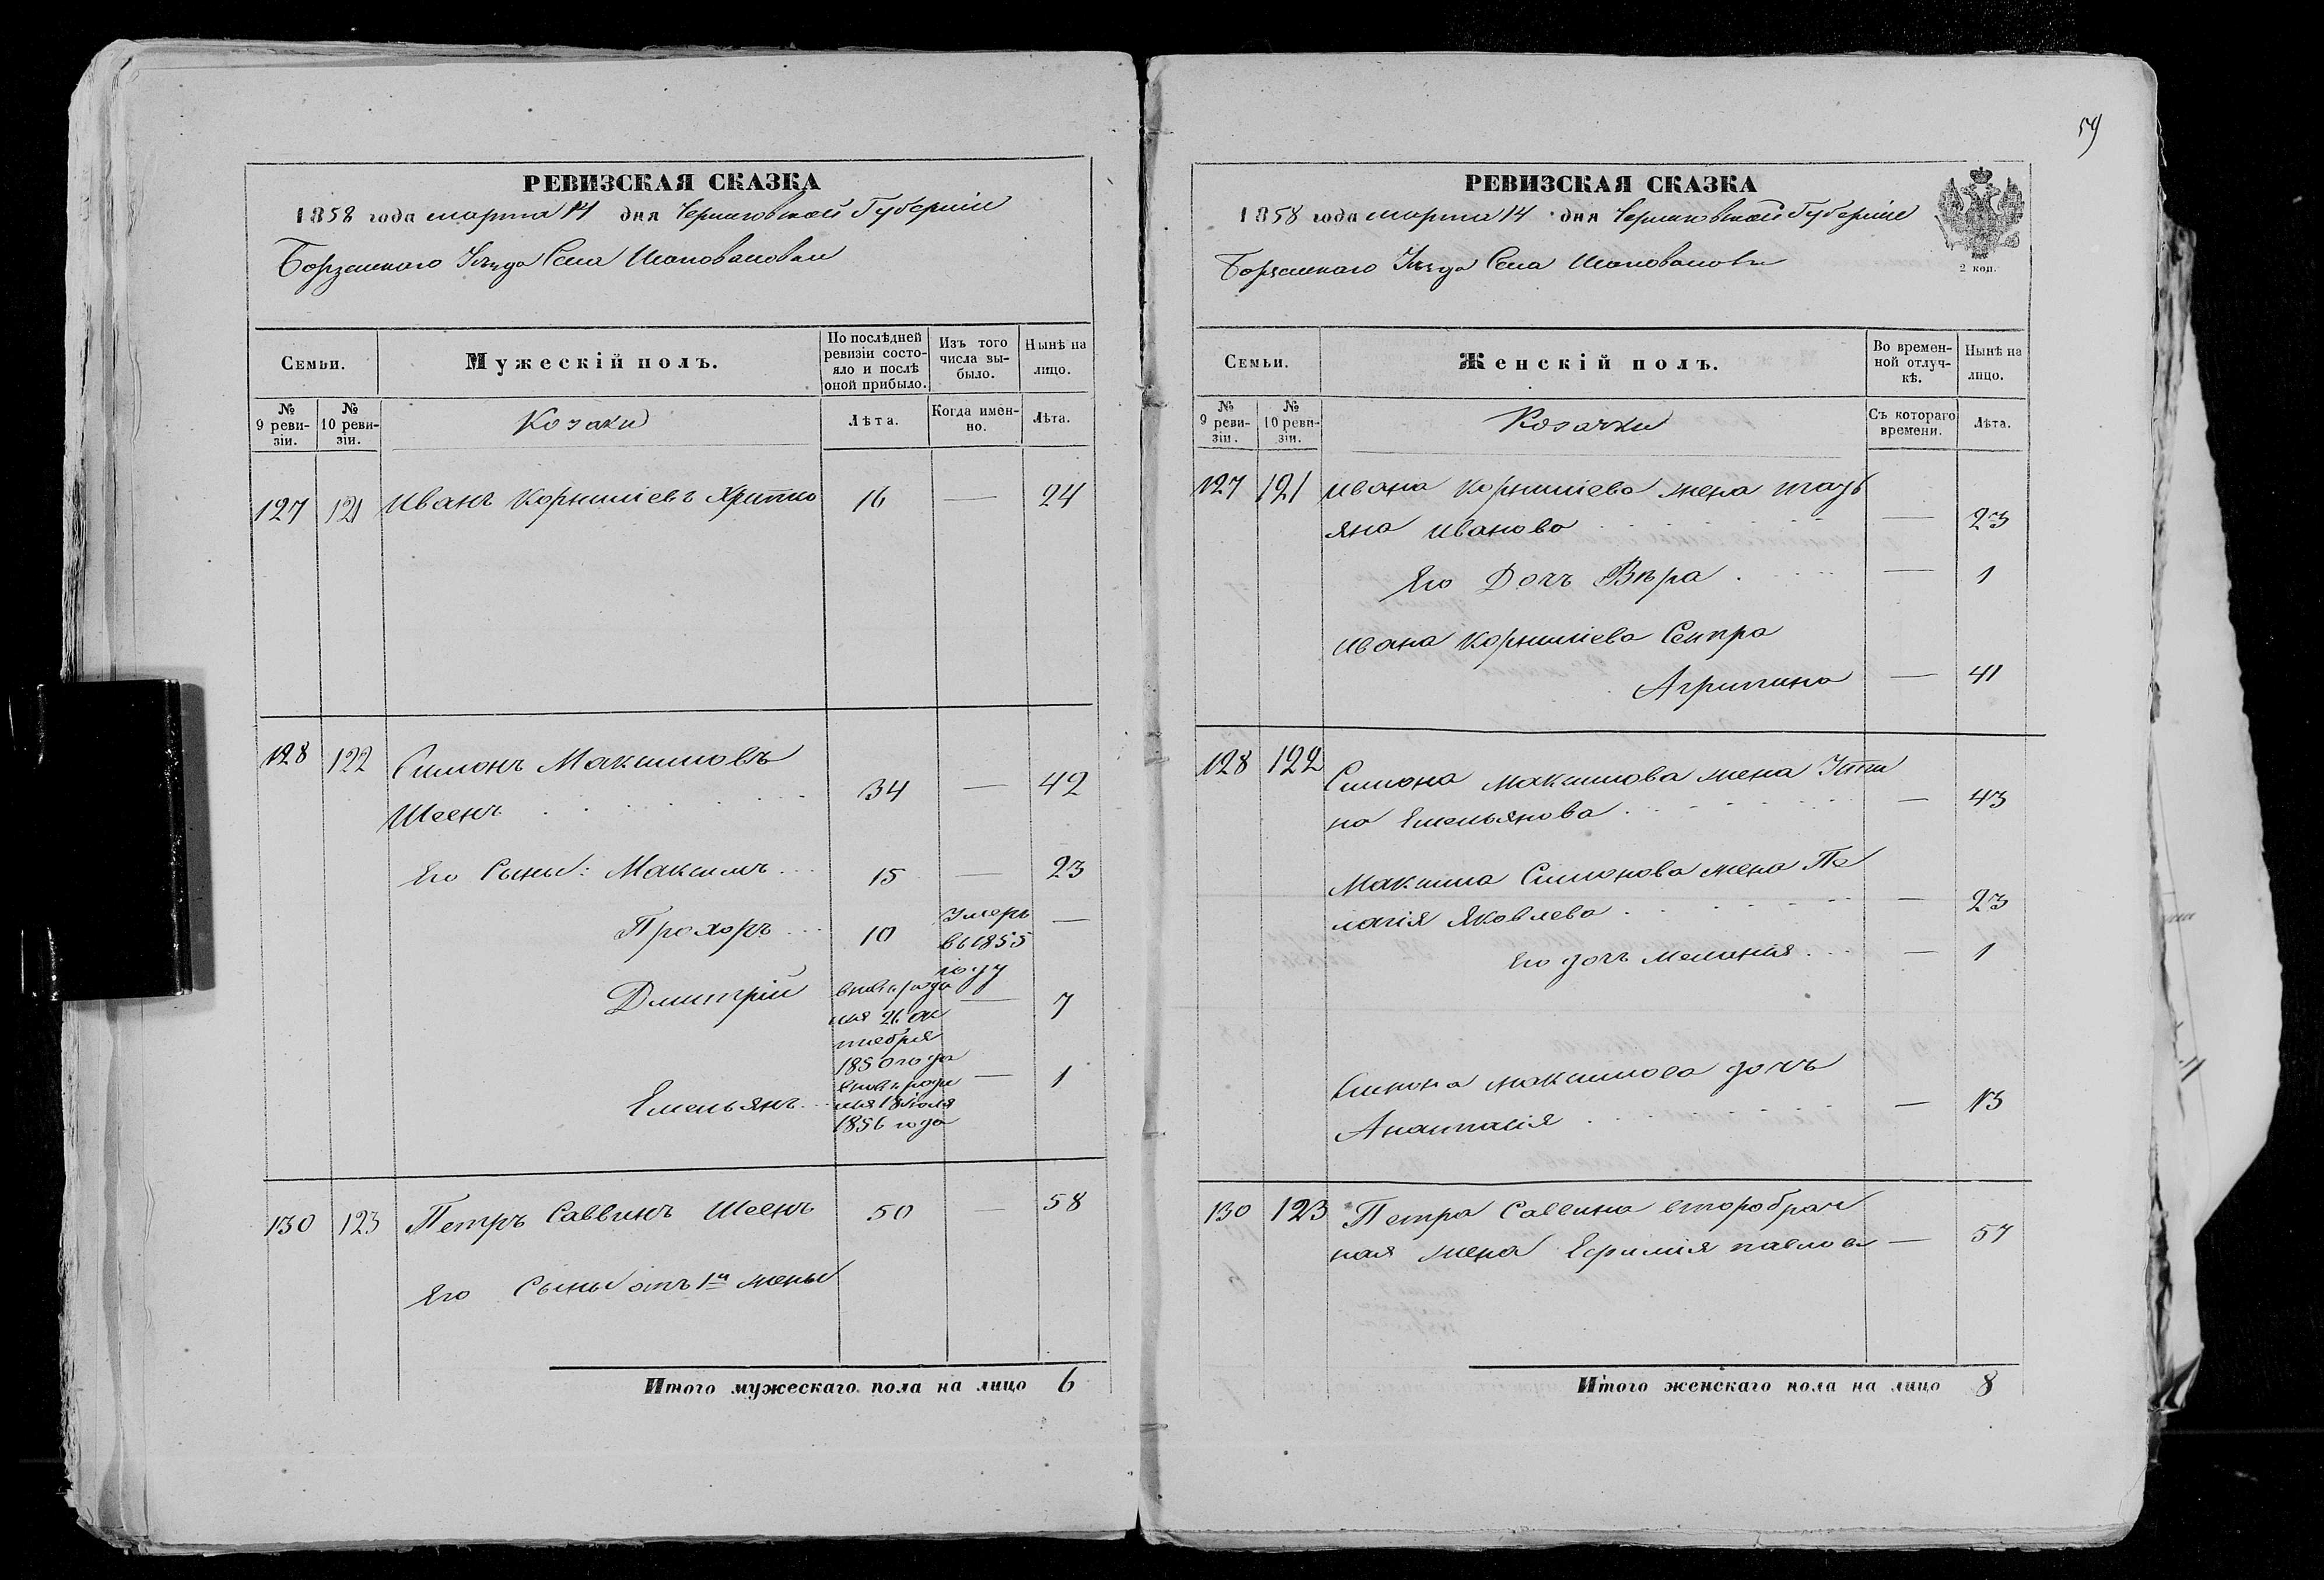 РЕВИЗСКАЯ СКАЗКА
1858 года марта 14 дня Черниговской Губерніи
Борзенскаго Уѣзда Села Шаповаловки
Семьи.
Мужескій полъ.
По послѣдней ревизіи состояло и послѣ оной прибыло.
Изъ того числа выбыло.
Нынѣ на лицо.
№ 9 ревизіи.
№ 10 ревизіи.
Козаки
Лѣта.
Когда именно.
Лѣта.
127 121 Иванъ Корниліевъ 16 — 24
128 122 Симонъ Максимовъ
Шеенъ 34 — 42
Его Сыны: Максимъ 15 — 23
Прохоръ 10 Умеръ —
въ 1855
году
Дмитрій вновь роди — 7
лся 21 ок
тября
1850 года
Емельянъ вновь роди — 1
лся 18 іюля
1856 года
130 123 Петръ Саввинъ Шеенъ 50 — 58
Его Сыны отъ 1й жены
Итого мужескаго пола на лицо 6
59
РЕВИЗСКАЯ СКАЗКА
1858 года марта 14 дня Черниговской Губерніи
Борзенскаго Уѣзда Села Шаповаловки
2 коп.
Семьи.
Женскій полъ.
Во временной отлучкѣ.
Нынѣ на лицо.
№ 9 ревизіи.
№ 10 ревизіи.
Козачки
Съ котораго времени.
Лѣта.
127 121 Ивана Корниліева жена
Иванова — 23
Его Дочъ Вѣра — 1
Ивана Корниліева Сестра
Агрипина — 41
128 122 Симона Максимова жена Усти
на Емельянова — 43
Максима Симонова жена Пе
лагія Яковлева — 23
Его дочъ Меланія — 1
Симона Максимова дочъ
Анастасія — 13
130 123 Петра Саввина второбрач
ная жена Ефимія Павлова — 57
Итого женскаго пола на лицо 8